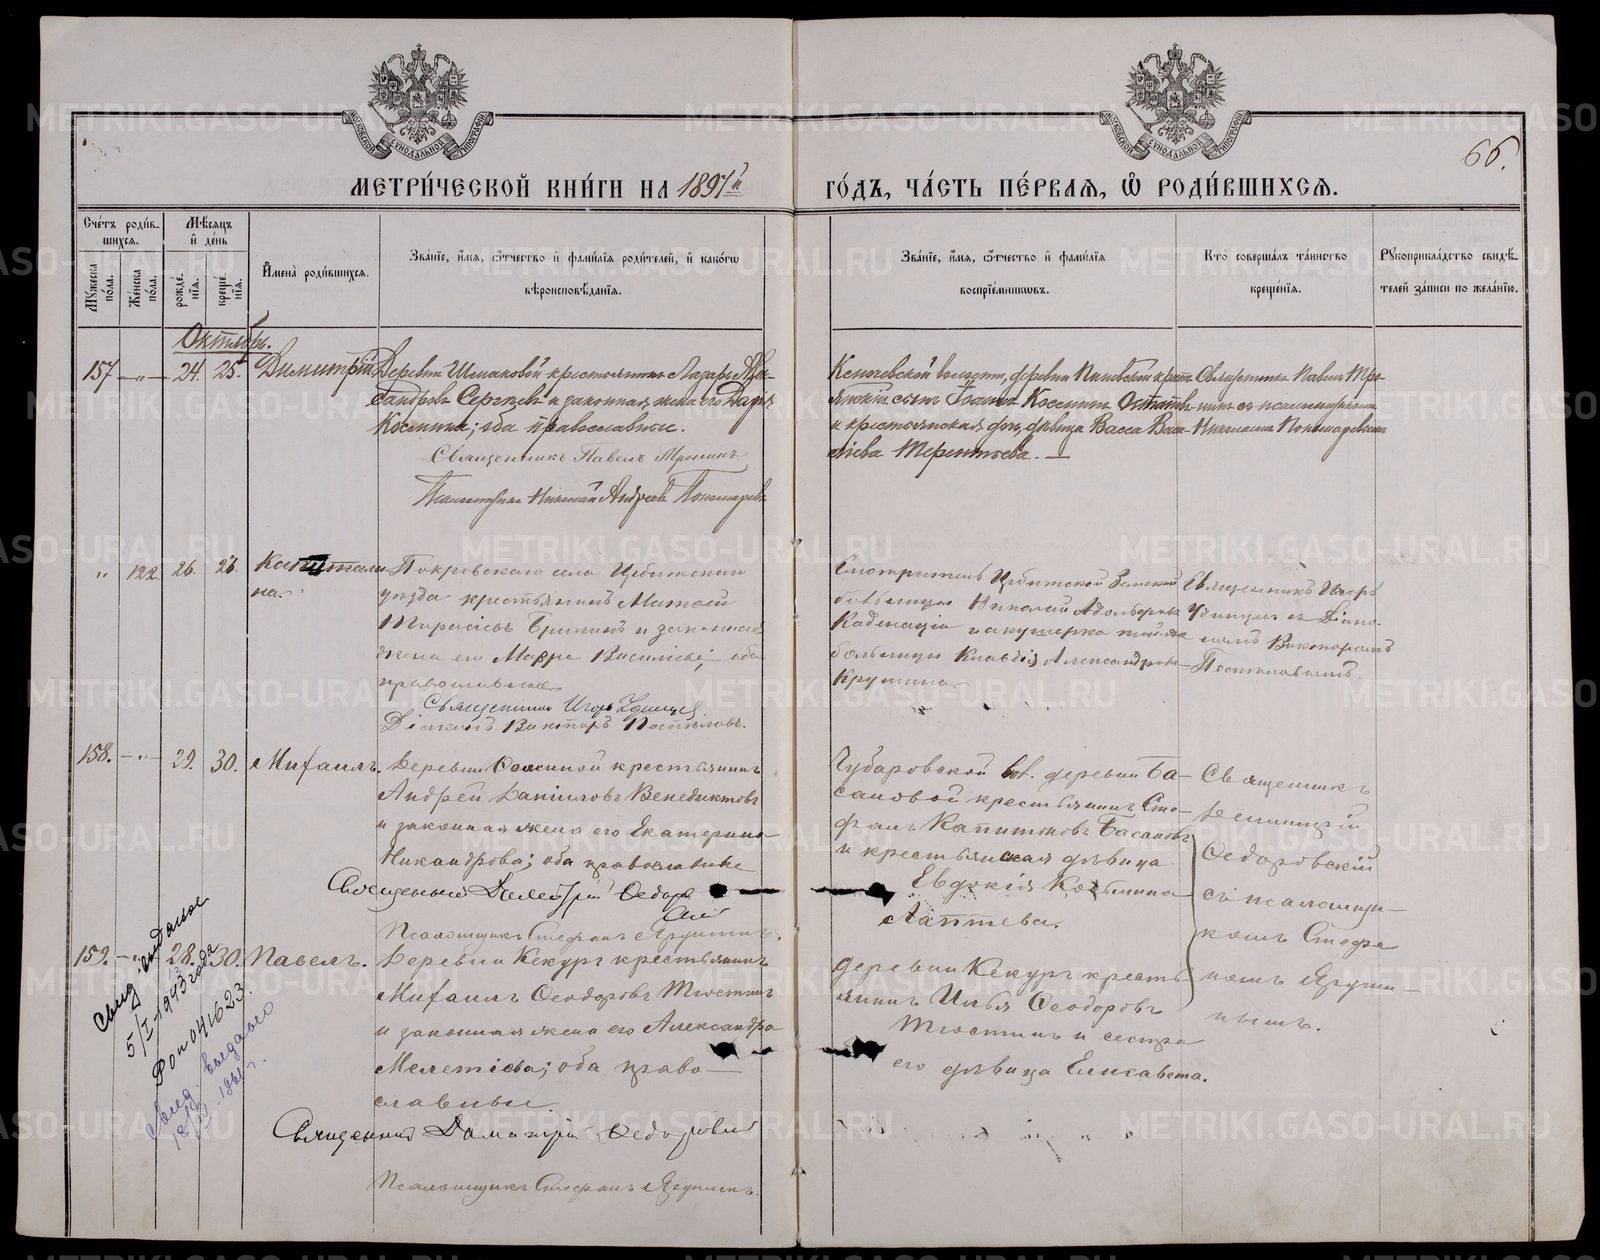 МЕТРИ́ЧЕСКОЙ КНИ́ГИ НА 1897й ГО́ДЪ, ЧА́СТЬ ПЕ́РВАЯ, Ѡ РОДИ́ВШИХСЯ.
66.
Сче́тъ роди́в-
шихся.
Мѣ́сяцъ
и҆ де́нь
Мꙋ́жеска по́ла.
Же́нска по́ла.
рожде́нїѧ.
креще́нїѧ.
И҆мена̀ роди́вшихся.
Зва́нїе, и҆́мя, ѻ҆́тчество и҆ фами́лїѧ роди́телей, и҆ како́гѡ
вѣроисповѣ́данїѧ.
Зва́нїе, и҆́мя, ѻ҆́тчество и҆ фами́лїѧ
воспрїе́мникѡвъ.
Кто̀ соверша́лъ та́инство
креще́нїѧ.
Рꙋкоприкла́дство свидѣ́-
телей за́писи по жела́нїю.
Октябрь.
157 — " — 24. 25. Димитрій
Деревни Шмаковой крестьянинъ Лазарь Алек-
сандровъ Сергѣевъ и законная жена его Дарья
Космина; оба православные.
Священникъ Павелъ
Псаломщикъ Николай Андреевъ Пономаревъ
волости, деревни крест.
сынъ Іоаннъ Косминъ
и крестьянская доч., дѣвица Васса Васи-
лiева Терентьева. —
Священникъ Павелъ
съ псаломщикомъ
Николаемъ Пономаревымъ
" 122. 26. 27. Капитоли-
на.
Покровскаго села Ирбитскаго
уѣзда крестьянинъ Матѳей
и законная
жена его Мавра Василіева; оба
православные
Священникъ Игорь
Діаконъ Викторъ Поспѣловъ.
Смотритель Ирбитской Земской
больницы Николай Адольфовъ
и акушерка той-же
больницы Клавдія Александрова
Крутина.
Священникъ Игорь
съ Діако-
номъ Викторомъ
Поспѣловымъ.
158. — " — 29. 30. Михаилъ.
Деревни крестьянинъ
Андрей Даниловъ Венедиктовъ
и законная жена его Екатерина
Никандрова; оба православные
Священникъ Димитрій Ѳедоров
ский
Псаломщикъ Стефанъ Ягунинъ.
Губаровской вол. деревни Ба-
сановой крестьянинъ Сте-
фанъ Капитоновъ Басановъ
и крестьянская дѣвица
Евдокія Козьмина
Лаптева.
Священникъ
Димитрій
Ѳедоровскій
съ псаломщи-
комъ Стефа
номъ Ягуни-
нымъ.
159. — " — 28. 30. Павелъ.
Деревни Кекуръ крестьянинъ
Михаилъ Ѳеодоровъ Тюстинъ
и законная жена его Александра
Мелетіева; оба право-
славные
Священникъ Димитрій Ѳедоровский
Псаломщикъ Стефанъ Ягунинъ.
деревни Кекуръ кресть
янинъ Илья Ѳеодоровъ
Тюстинъ и сестра
его дѣвица Елисавета.
Свид. выдано
5/I 1943 года
041623.
Свид. выдано
МОСКОВСКОЙ СѴНОДАЛЬНОЙ ТИПОГРАФІИ
МОСКОВСКОЙ СѴНОДАЛЬНОЙ ТИПОГРАФІИ
METRIKI.GASO-URAL.RU